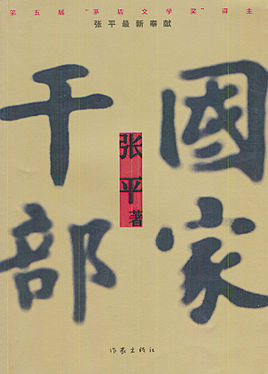 第五届“茅盾文学奖”得主
张平最新奉献
國家
干部
张平著
作家出版社